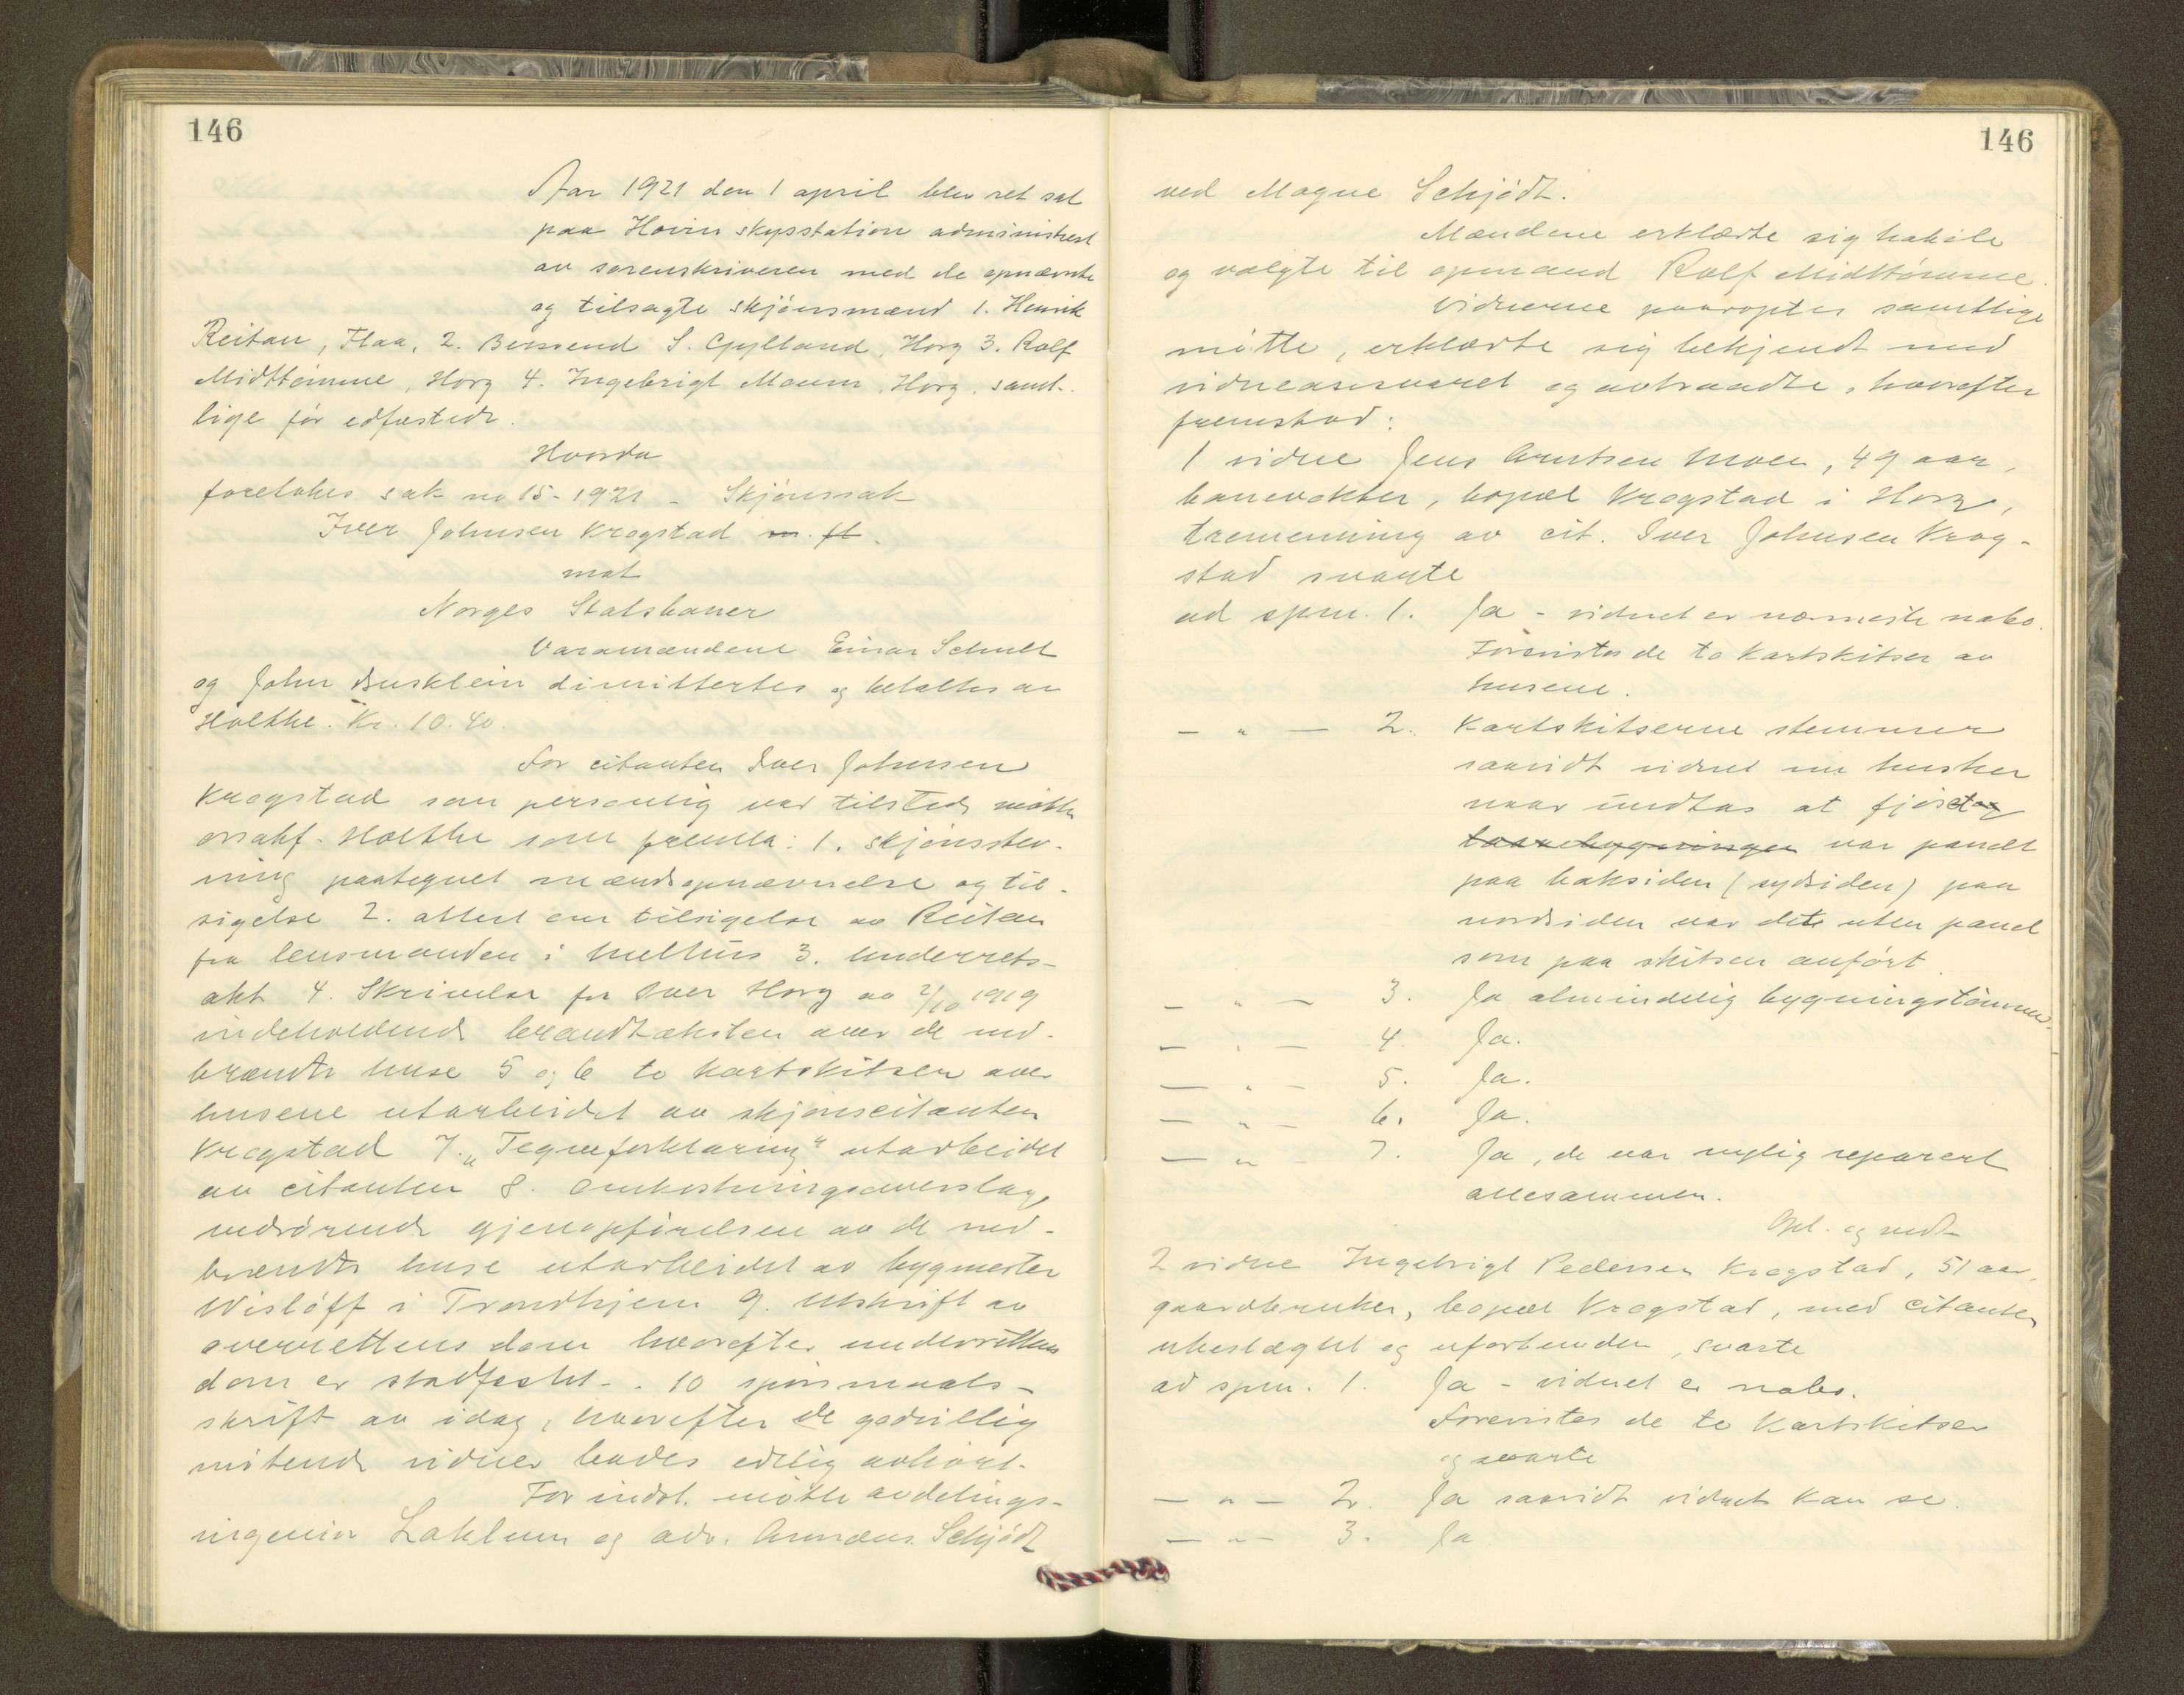 146
Aar 1921 den 1 april blev ret sat
paa Hovin skysstation administrert
av sorenskriveren med de opnævnte
og tilsagte skjønsmænd 1. Henrik
Reitan, Flaa, 2. S. Gylland, Horg 3. Rolf
Midttømme, Horg 4. Ingebrigt Moum, Horg, samt-
lige før edfæstede.
Hvorda
foretokes sak no 15-1921 - Skjønssak
Iver Johnsen Krogstad m. fl.
mot
Norges Statsbaner
Varamændene Einar Schult
og John Busklein dimittertes og betaltes av
Holthe. Kr. 10.40.
For citanten Iver Johnsen
Krogstad som personlig var tilstede møtte
orsakf. Holthe som fremla: 1. skjønsstev-
ning paategnet mændsopnævnelse og til-
sigelse 2. attest om tilsigelse av Reitan
fra lensmanden i Melhus 3. Underrets-
akt 4. Skrivelse fra Iver Horg av 2/10 1919
indeholdende brandtaksten over de ned-
brændte huse 5 og 6 to kartskitser over
husene utarbeidet av skjønscitanten
Krogstad 7. „Tegnforklaring" utarbeidet
av citanten 8. Omkostningsoverslag
vedrørende gjenopførelsen av de ned-
brændte huse utarbeidet av bygmester
Wisløff i Trondhjem 9. Utskrift av
overrettens dom hvorefter underrettens
dom er stadfæstet - . 10 spørsmaals-
skrift av idag, hvorefter de godvillig
møtende vidner bedes edelig avhørt.
For indst. møtte avdelings-
ingeniør Laklum og adv. Annæus Schjødt
146
ved Magne Schjødt.
Mændene erklærte sig habile
og valgte til opmand Rolf Midttømme.
Vidnerne paaroptes samtlige
møtte, erklærte sig bekjendt med
vidneansvaret og avtraadte, hvorefter
fremstod:
1 vidne Jens Arntsen Moen, 49 aar,
banevokter, bopæl Krogstad i Horg,
tremenning av cit. Iver Johnsen Krog-
stad svarte
ad spm. 1. Ja - vidnet er nærmeste nabo.
Forevistes de to kartskitser av
husene.
— „ — 2. Kartskitserne stemmer
saavidt vidnet nu husker
naar undtas at fjøset og
laavebygningen var panelt
paa baksiden (sydsiden) paa
nordsiden var det uten panel
som paa skitsen anført.
— „ — 3. Ja almindelig bygningstømmer.
— „ — 4. Ja.
— „ — 5. Ja.
— „ — 6. Ja.
— „ — 7. Ja, de var nylig reparert
allesammen.
Opl. og vedt.
2 vidne Ingebrigt Pedersen Krogstad, 51 aar,
gaardbruker, bopæl Krogstad, med citanten
ubeslægtet og uforbunden, svarte
ad spm. 1. Ja - vidnet er nabo.
Forevistes de to Kartskitser
og svarte
— „ — 2. Ja saavidt vidnet kan se.
— „ — 3. Ja